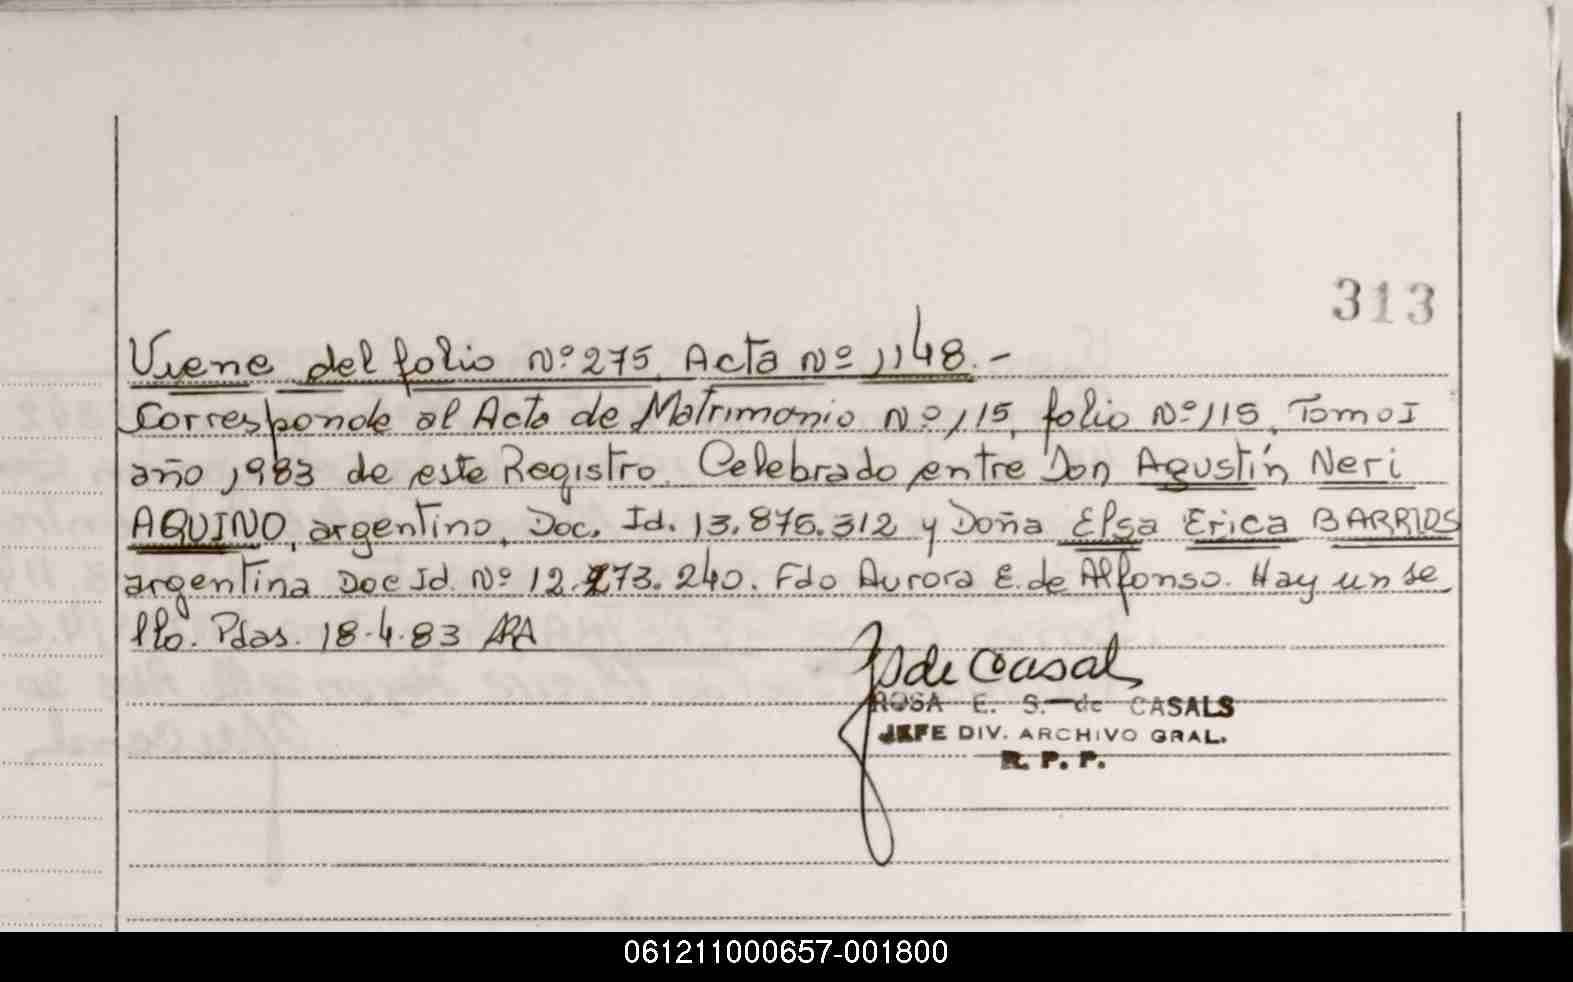 313
Viene del folio Nº 275, Acta Nº 1148.-
Corresponde al Acta de Matrimonio Nº 115, folio Nº 115, Tomo I
año 1983 de este Registro. Celebrado entre Don Agustín Neri
AQUINO, argentino, Doc. Id. 13.875.312 y Doña Elsa Erica BARRIOS
argentina Doc Id. Nº 12.273.240. Fdo Aurora E. de Alfonso. Hay un se
llo. Pdas. 18-4-83 ARA
de Casal
ROSA E. S. de CASALS
JEFE DIV. ARCHIVO GRAL.
R. P. P.
061211000657-001800